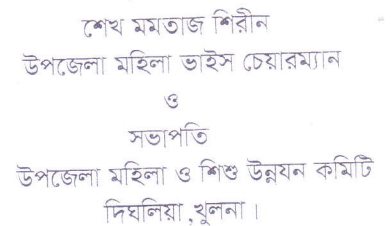 শেখ মমতাজ শিরীন
উপজেলা মহিলা ভাইস চেয়ারম্যান
ও
সভাপতি
উপজেলা মহিলা ও শিশু উন্নয়ন কমিটি
দিঘলিয়া ,খুলনা ।